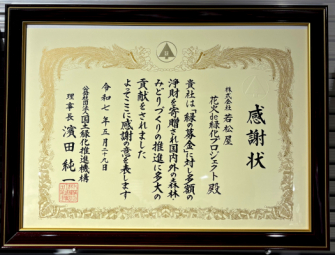 感謝状
株式会社 若松屋
花火de緑化プロジェクト 殿
貴社は「緑の募金」に対し多額の
浄財を寄贈され国内外の森林
みどりづくりの推進に多大の
貢献をされました
よってここに感謝の意を表します
令和七年五月二十九日
公益社団法人国土緑化推進機構
理事長 濱田純一